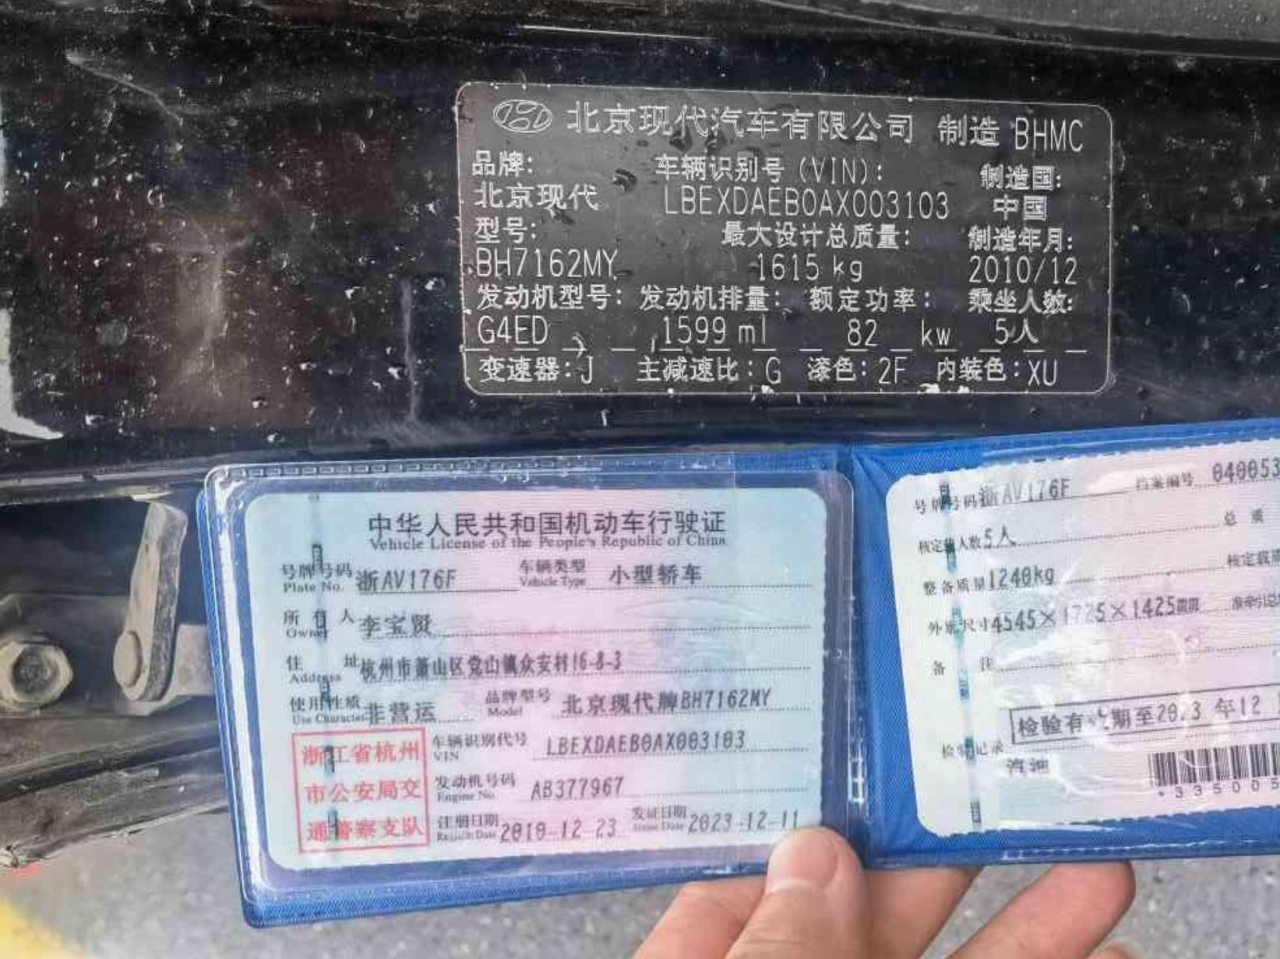 北京现代汽车有限公司 制造 BHMC
品牌: 车辆识别号(VIN): 制造国:
北京现代 LBEXDAEB0AX003103 中国
型号: 最大设计总质量: 制造年月:
BH7162MY 1615 kg 2010/12
发动机型号: 发动机排量: 额定功率: 乘坐人数:
G4ED 1599 ml 82 kw 5人
变速器:J 主减速比:G 漆色:2F 内装色:XU
中华人民共和国机动车行驶证
Vehicle License of the People's Republic of China
号牌号码 浙AV176F 车辆类型 小型轿车
Plate No. Vehicle Type
所有人 李宝贤
Owner
住址 杭州市萧山区党山镇众安村16-8-3
Address
使用性质 非营运 品牌型号 北京现代牌BH7162MY
Use Character Model
浙江省杭州
市公安局交
通警察支队
车辆识别代号 LBEXDAEB0AX003103
VIN
发动机号码 AB377967
Engine No.
注册日期 2010-12-23 发证日期 2023-12-11
Register Date Issue Date
号牌号码 浙AV176F 档案编号 040053
核定载人数 5人 总质
整备质量 1240kg 核定载质
外廓尺寸 4545×1725×1425 准牵引总
备注
检验有效期至2023 年12
检验记录
汽油
*335005